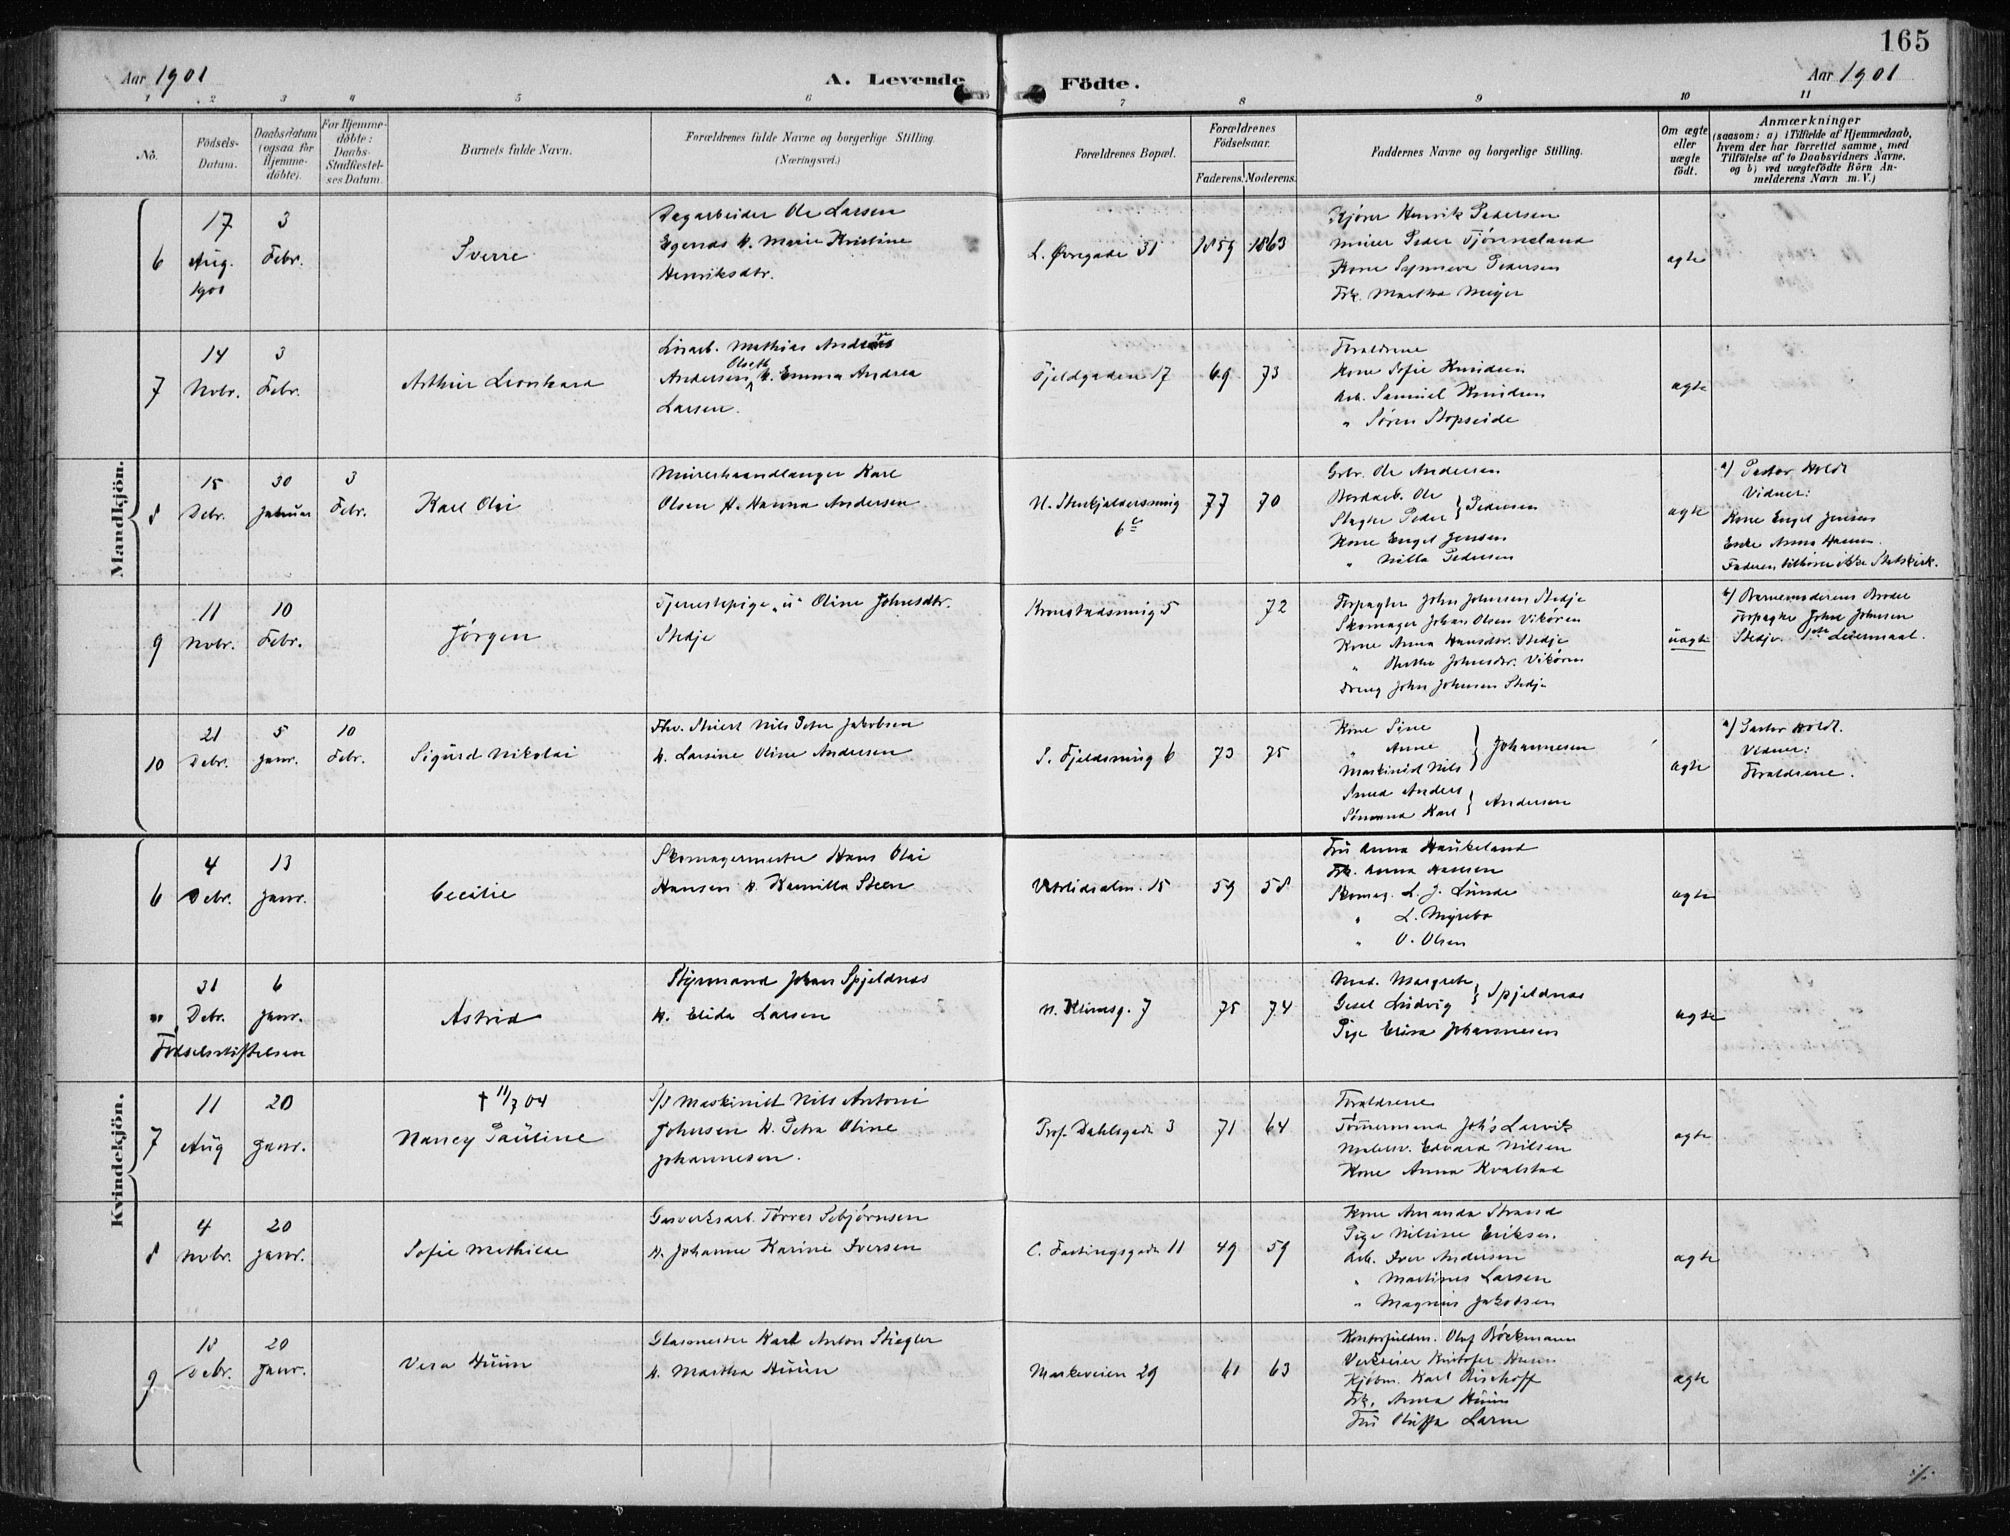 165
Aar 1901
A. Levende Födte.
Aar 1901
1 2 3 4 5 6 7 8 9 10 11
No.
Födsels-Datum.
Daabsdatum (ogsaa for Hjemme-döbte).
For Hjemme-döbte: Daabs-Stadfæstel-ses Datum.
Barnets fulde Navn.
Forældrenes fulde Navne og borgerlige Stilling. (Næringsvei.)
Forældrenes Bopæl.
Forældrenes Födselsaar.
Faderens. Moderens.
Faddernes Navne og borgerlige Stilling.
Om ægte eller uægte födt.
Anmærkninger
(saasom: a) i Tilfælde af Hjemmedaab, hvem der har forrettet samme, med Tilföielse af to Daabsvidners Navne. og b) ved uægtefödte Börn Anmelderens Navn m. V.)
Mandkjön.
6
17 Aug. 1900
3 Febr.
Sverre
Dagarbeider Ole Larsen
Egenes H. Marie Kristine
Henriksdtr.
L. Øvregade 31
1859 1863
Kjører Henrik Pedersen
Murer Peder Tjønneland
Kone Synneve Pedersen
Frk. Martha Meijer
ægte
7
14 Novbr.
3 Febr.
Arthur Leonhard
Løsarb. Mathias Andreas
Olseth
Andersen H. Emma Andrea
Larsen.
Fjeldgaden 17
69 73
Forældrene
Kone Sofie Knudsen
Arb. Samuel Knudsen
" Søren Stopseide
ægte
8
15 Debr.
30 Januar
3 Febr.
Karl Olai
Murerhaandlanger Karl
Olsen H. Hanna Andersen
N. Stenkjeldersmug
6c
77 70
Grbr. Ole Andersen
Bordarb. Ole
Slagter Peder } Pedersen
Kone Engel Jensen
" Nilla Pedersen
ægte
a) Pastor Holdt
Vidner:
Kone Engel Jensen
Enke Anna Hansen.
Faderen tilhører ikke Statskirk.
9
11 Novbr.
10 Febr.
Jørgen
Tjenestepige "u" Oline Johnsdtr.
Stedje
Kronstadsmug 5
72
Forpagter John Johnsen Stedje
Skomager Johan Olsen Vikören
Kone Anna Hansdtr. Stedje
" Berthe Johnsdtr. Vikören
Dreng John Johnsen Stedje
uægte
b) Barnemoderens Broder
Forpagter John Johnsen
Stedje. 1ste Leiermaal.
10
21 Debr.
5 Janr.
10 Febr.
Sigurd Nikolai
Fhv. Stuert Nils Peter Jakobsen
H. Larsine Oline Andersen
S. Fjeldsmug 6
73 75
Kone Sine
" Anne
Maskinist Nils } Johannesen
Smed Anders
Sømand Karl } Andersen
ægte
a) Pastor Holdt.
Vidner:
Forældrene.
Kvindekjön.
6
4 Debr.
13 Janr.
Cecilie
Skomagermester Hans Olai
Hansen H. Kamilla Steen
Vetrlidsalm. 15
59 58
Fru Anna Haukeland
Frk. Anna Hansen
Skomag. L. J. Lunde
" L. Myrebø
" O. Olsen
ægte
"
31 Debr.
6 Janr.
Fødselsstiftelsen
Astrid
Styrmand Johan Spjeldnæs
H. Elida Larsen
N. Klivesg. 7
75 74
Mad. Margrete
Gesel Ludvig } Spjeldnæs
Pige Erisa Johannesen
ægte
7
11 Aug
20 Janr.
† 11/7 04
Nancy Pauline
D/S Maskinist Nils Antoni
Johnsen H. Petra Oline
Johannesen.
Prof. Dahlsgade 3
71 64
Forældrene
Tømmermand Joh's Larvik
Malersv. Edvard Nilsen
Kone Anna Kvalstad
ægte
8
4 Novbr.
20 Janr.
Sofie Mathilde
Gasverksarb. Tørres Sebjørnsen
H. Johanne Karine Iversen
C. Fastingsgade 11
49 59
Kone Amanda Strand
Pige Nilsine Eriksen.
Arb. Iver Andersen
" Martines Larsen
" Magnus Jakobsen
ægte
9
18 Debr.
20 Janr.
Vera Huun
Glasmester Karl Anton Stiegler
H. Martha Huun
Markeveien 29
61 63
Kontorfuldm. Olaf Bøckmann
Verkseier Kristofer Huun
Kjøbm. Karl Bischoff
Frk. Anna Huun
Fru Oluffa Larne
ægte